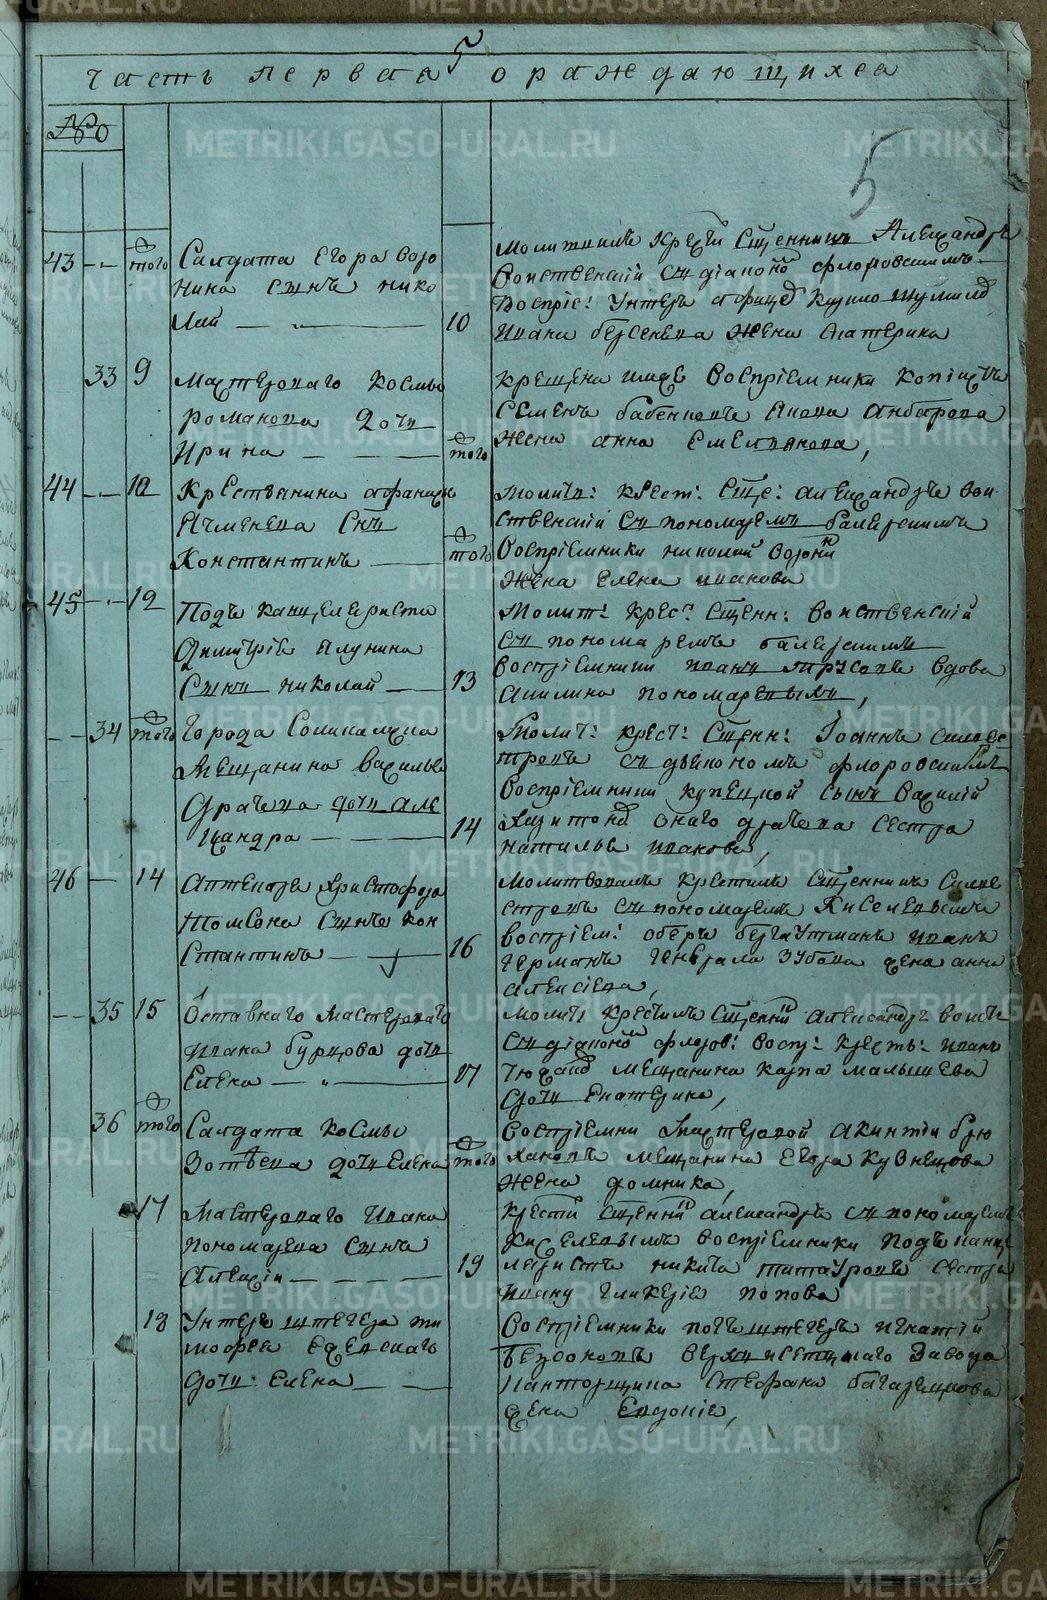 5
Часть первая о раждающихся
№
5
43 - - того Салдата Егора Воро
нина сынъ Нико
лай — 10
Молитвилъ крести Сщенникъ Александръ
Воинственскій съ діакономъ Флоровскимъ
Воспріе: Унтеръ офицеръ
Ивана Берсенева жена Катерина
33 9 Мастероваго Космы
Романова дочь
Ирина — того
крещена иже Воспріемники копіистъ
Семенъ Бабенковъ Анбарова
жена Анна Емельянова,
44 - - 10 Крестьянина Афанасья
Ячменева сынъ
Константинъ — того
Молитв: крест: Сще: Александръ Вои
ственскій съ пономаремъ
Воспріемники Николай Воронин
жена Елена Иванова
45 - - 12 Подъ канцеляриста
Димитрія Ялунина
Сынъ Николай — 13
Молит: крес: Сщенн: Воинственскій
съ пономаремъ
воспріемники Иванъ Трусовъ вдова
Акилина Пономаревыхъ,
- - 34 того Города Соликамска
Мещанина Василья
Драчева дочь Але
ксандра — 14
Молит: крест: Сщенн: Іоаннъ Сильве
стровъ съ дьякономъ Флоровскимъ
Воспріемники купецкой сынъ Василій
Харитонов онаго Драчева сестра
Наталья Иванова,
46 — 14 Аптекаря Христофора
Томсона сынъ Кон
стантинъ — 16
Молитвовалъ крестилъ Сщенникъ Силве
стровъ съ пономаремъ Киселевымъ
воспріем: оберъ бергауптманъ Иванъ
Германъ Генерала Зубова жена Анна
Алексіева,
- - 35 15 Оставнаго Мастероваго
Ивана Бурцова дочь
Елена — 17
Молитв: крестилъ Сщенник Александръ Воин
съ діаконом Флоров: воспр: крестъ: Иванъ
Мещанина Карпа Малышева
дочь Екатерина,
36 того Салдата Космы
Зотѣева дочь Елена того
Воспріемни Мастеровой Акинтій Брю
хановъ Мещанина Егора Кузнецова
жена Домника,
17 Мастероваго Ивана
Пономарева сынъ
Алексій — 19
Крести Сщенник Александръ съ пономаремъ
Киселевымъ Воспріемники подъканце
ляристъ Никита Татауровъ сестра
Гликерія Попова
18 Унтеръ штегера Ти
мофея
дочь Елена —
Воспріемники штегеръ Игнатій
Безсоновъ Верхъ исетцкаго завода
Кантонщика Стефана
жена Евдокіе,